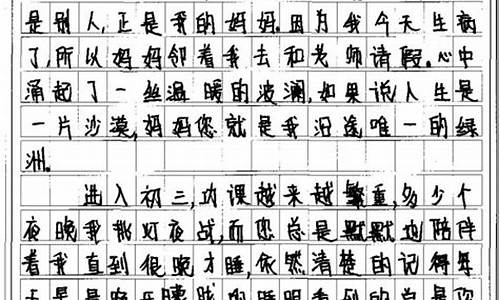 是别人,正是我的妈妈.因为我今天生病
了,所以妈妈邻着我去和老师请假。心中
涌起了一丝温暖的波澜,如果说人生是
一片沙漠,妈妈您就是我沿途唯一的绿
洲。
进入初三,功课越来越繁重,多少个
夜晚我挑灯夜战,而您总是默默地陪伴
着我直到很晚才睡,依然清楚的记得每